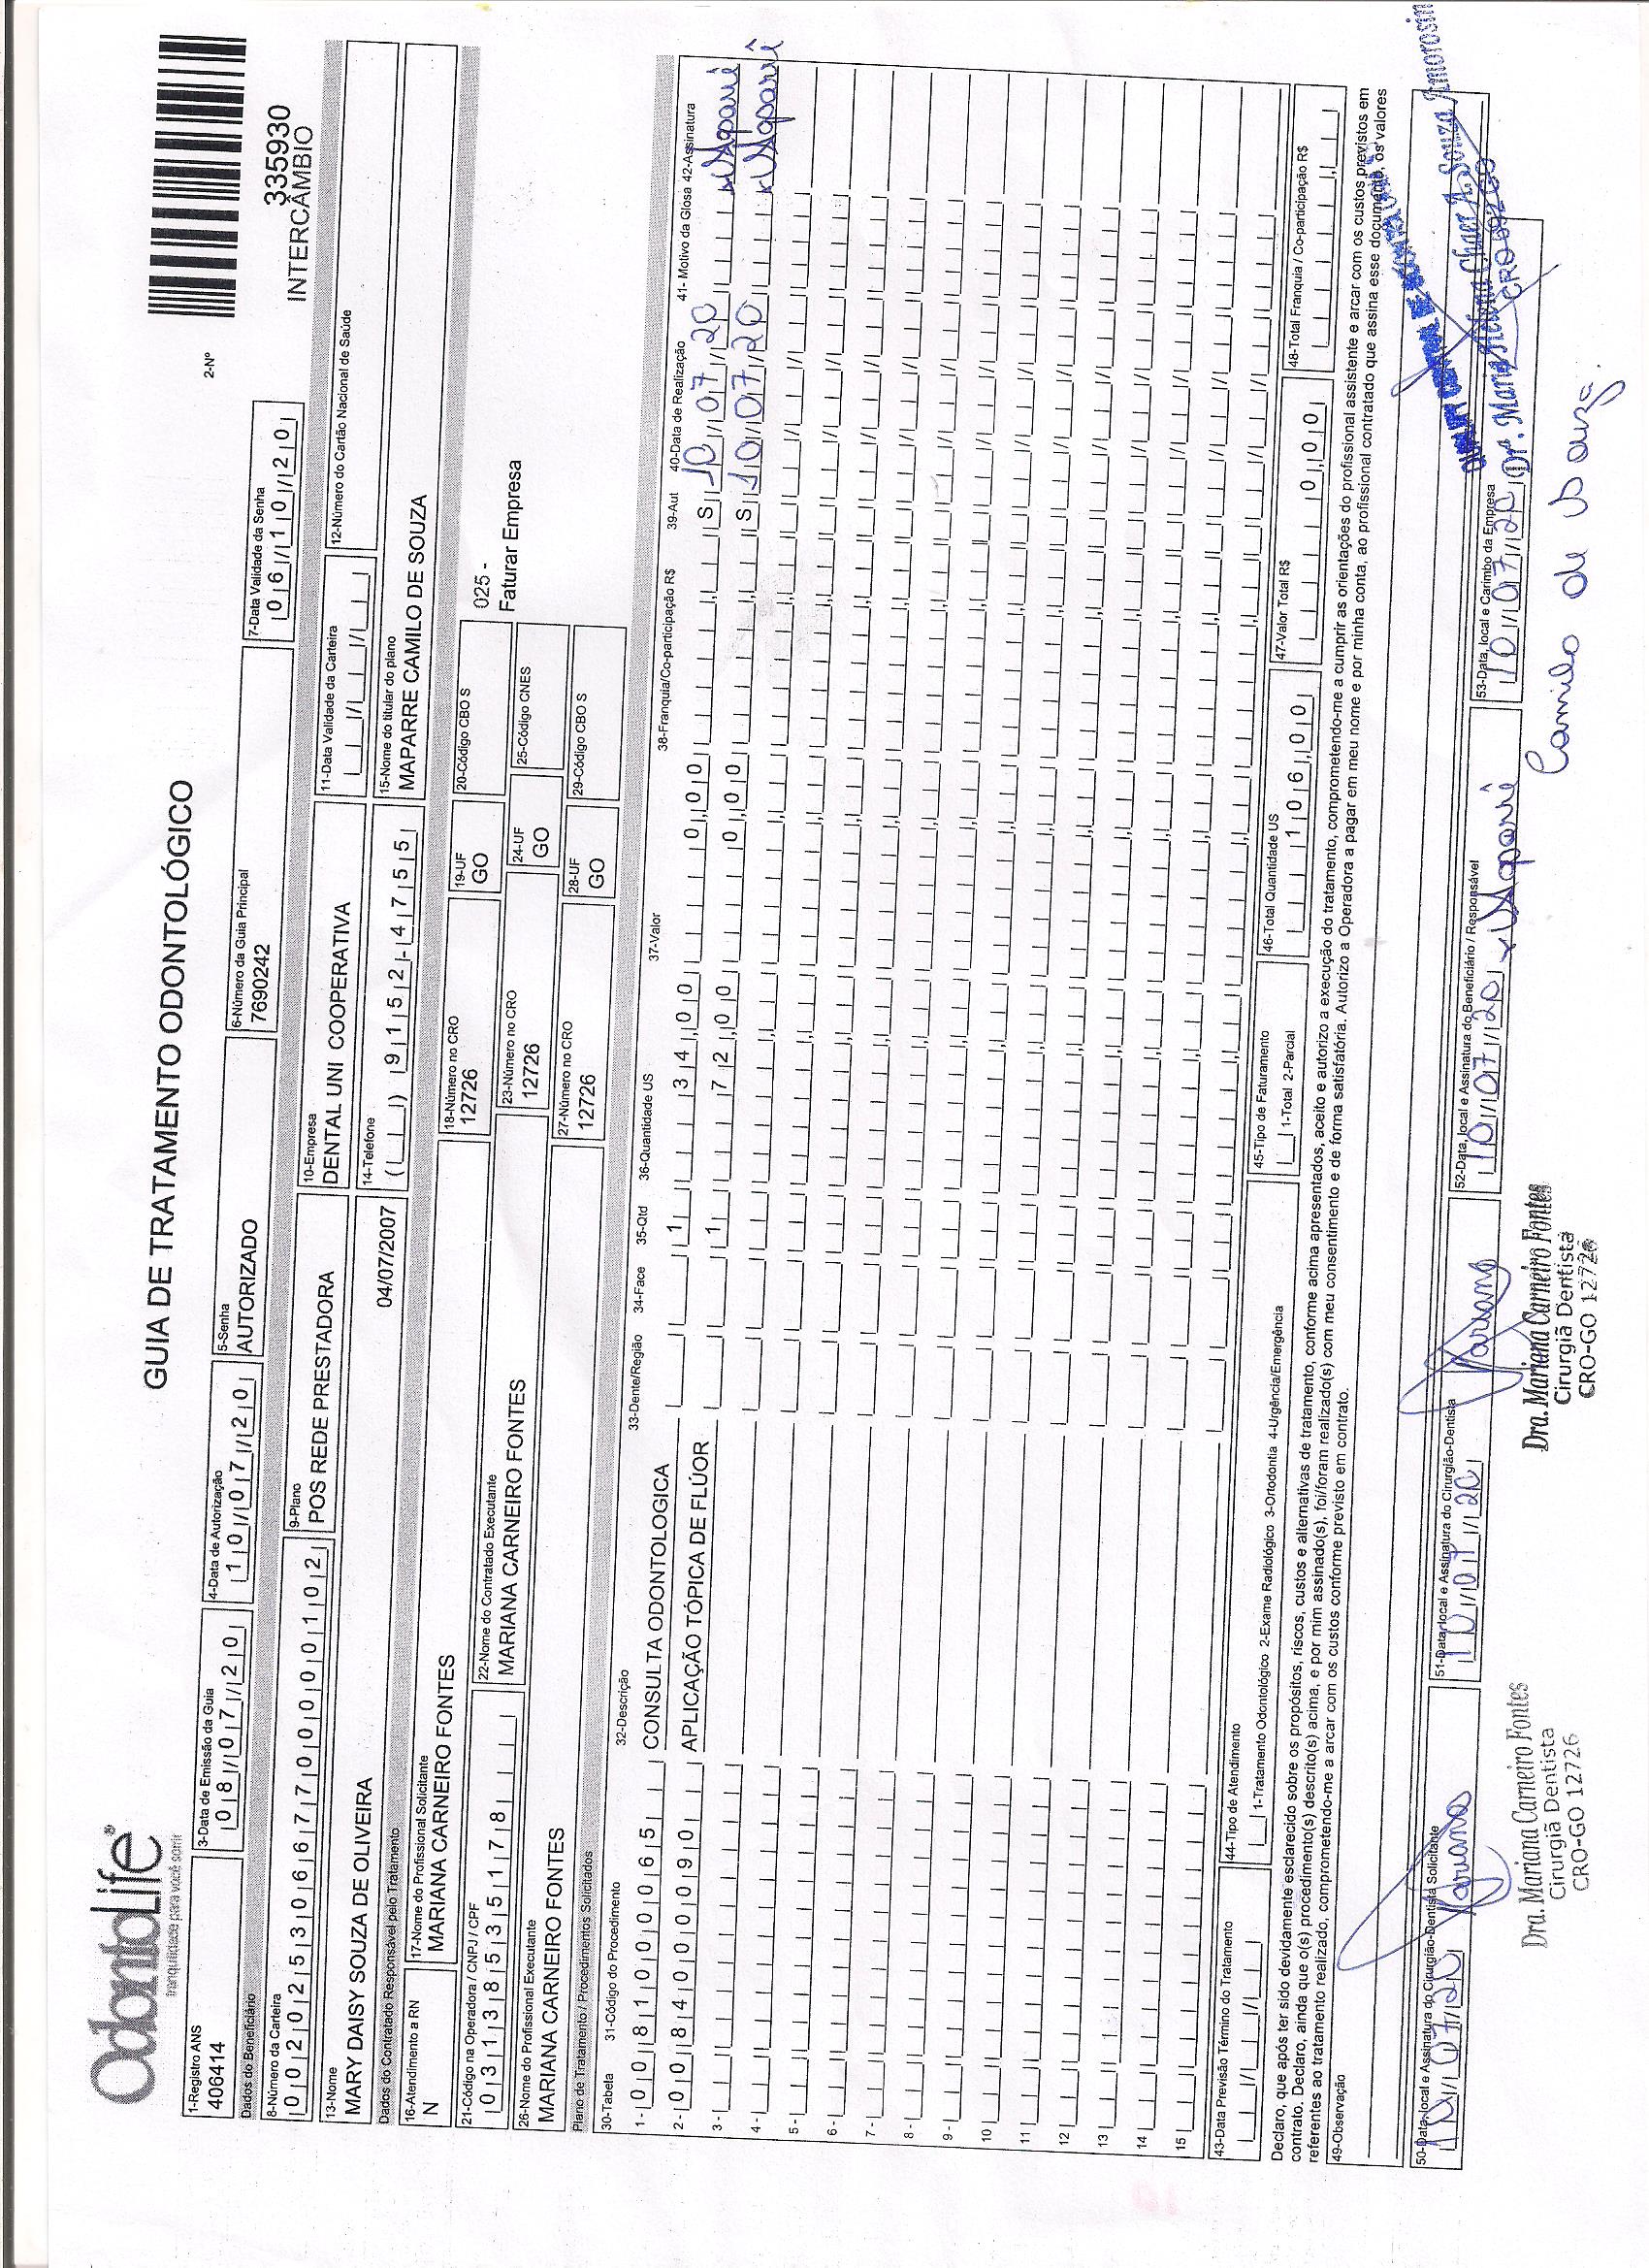 OdontoLife®
tranquilidade para você sorrir
GUIA DE TRATAMENTO ODONTOLÓGICO
2-Nº
335930
INTERCÂMBIO
1-Registro ANS
406414
3-Data de Emissão da Guia
08/07/20
4-Data de Autorização
10/07/20
5-Senha
AUTORIZADO
6-Número da Guia Principal
7690242
7-Data Validade da Senha
06/10/20
Dados do Beneficiário
8-Número da Carteira
00202530667700000102
9-Plano
POS REDE PRESTADORA
10-Empresa
DENTAL UNI COOPERATIVA
11-Data Validade da Carteira
12-Número do Cartão Nacional de Saúde
13-Nome
MARY DAISY SOUZA DE OLIVEIRA
04/07/2007
14-Telefone
( ) 9152-4755
15-Nome do titular do plano
MAPARRE CAMILO DE SOUZA
Dados do Contratado Responsável pelo Tratamento
16-Atendimento a RN
N
17-Nome do Profissional Solicitante
MARIANA CARNEIRO FONTES
18-Número no CRO
12726
19-UF
GO
20-Código CBO S
025 -
Faturar Empresa
21-Código na Operadora / CNPJ / CPF
03138535178
22-Nome do Contratado Executante
MARIANA CARNEIRO FONTES
23-Número no CRO
12726
24-UF
GO
25-Código CNES
26-Nome do Profissional Executante
MARIANA CARNEIRO FONTES
27-Número no CRO
12726
28-UF
GO
29-Código CBO S
Plano de Tratamento / Procedimentos Solicitados
30-Tabela 31-Código do Procedimento 32-Descrição 33-Dente/Região 34-Face 35-Qtd 36-Quantidade US 37-Valor 38-Franquia/Co-participação R$ 39-Aut 40-Data de Realização 41- Motivo da Glosa 42-Assinatura
1 - 00 81000065 CONSULTA ODONTOLOGICA 1 34,00 0,00 S 10/07/20
2 - 00 84000090 APLICAÇÃO TÓPICA DE FLÚOR 1 72,00 0,00 S 10/07/20
3 -
4 -
5 -
6 -
7 -
8 -
9 -
10
11
12
13
14
15
43-Data Previsão Término do Tratamento
44-Tipo de Atendimento
1-Tratamento Odontológico 2-Exame Radiológico 3-Ortodontia 4-Urgência/Emergência
45-Tipo de Faturamento
1-Total 2-Parcial
46-Total Quantidade US
106,00
47-Valor Total R$
0,00
48-Total Franquia / Co-participação R$
Declaro, que após ter sido devidamente esclarecido sobre os propósitos, riscos, custos e alternativas de tratamento, conforme acima apresentados, aceito e autorizo a execução do tratamento, comprometendo-me a cumprir as orientações do profissional assistente e arcar com os custos previstos em
contrato. Declaro, ainda que o(s) procedimento(s) descrito(s) acima, e por mim assinado(s), foi/foram realizado(s) com meu consentimento e de forma satisfatória. Autorizo a Operadora a pagar em meu nome e por minha conta, ao profissional contratado que assina esse documento, os valores
referentes ao tratamento realizado, comprometendo-me a arcar com os custos conforme previsto em contrato.
49-Observação
50-Data, local e Assinatura do Cirurgião-Dentista Solicitante
10/07/20 Mariana
51-Data, local e Assinatura do Cirurgião-Dentista
10/07/20 Mariana
52-Data, local e Assinatura do Beneficiário / Responsável
10/07/20
53-Data, local e Carimbo da Empresa
10/07/20
Drª. Maria Helena Chaer A. Souza Amorosin
Camilo de Souza
Dra. Mariana Carneiro Fontes
Cirurgiã Dentista
CRO-GO 12726
Dra. Mariana Carneiro Fontes
Cirurgiã Dentista
CRO-GO 12726